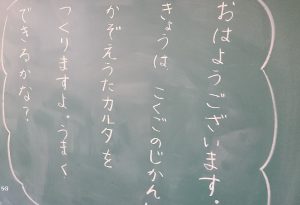 おはようございます。
きょうは こくごのじかん、
かぞえうたカルタを
つくりますよ。うまく
できるかな?